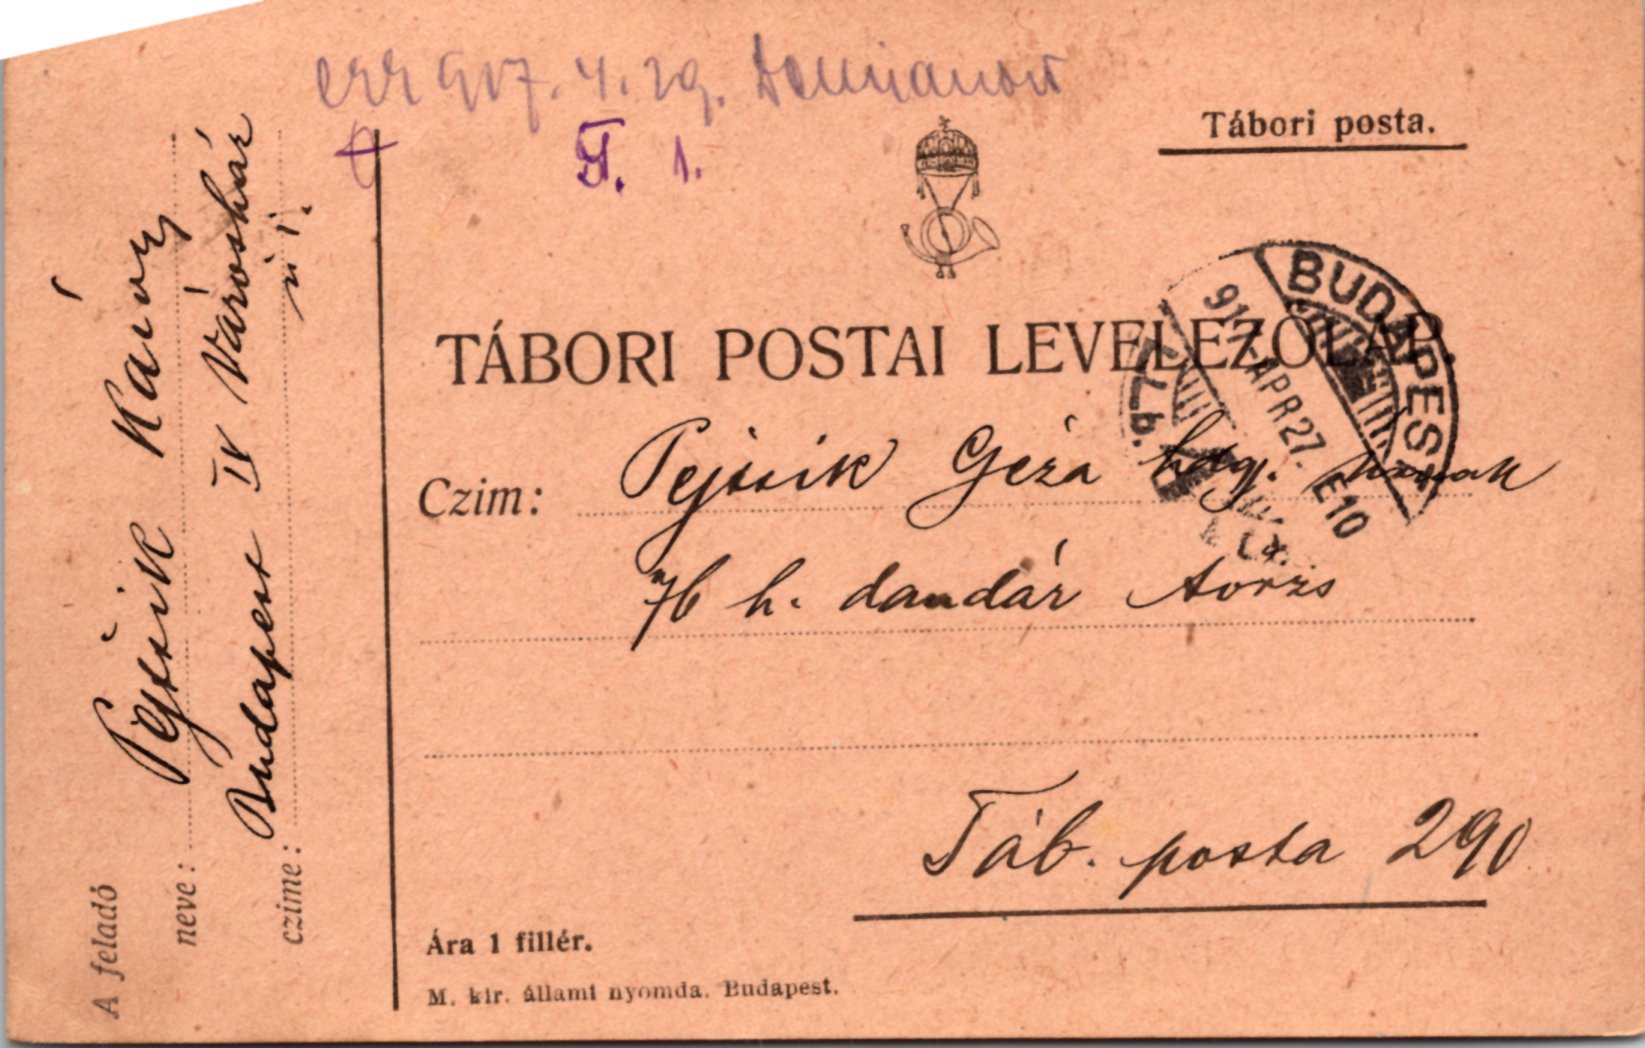 err 917. 4. 29. Damianow
I. 1.
Tábori posta.
TÁBORI POSTAI LEVELEZŐLAP.
BUDAPEST
917 APR 27. E10
72b.
Czim: Pejtsik Géza hdgy. úrnak
76 h. dandár törzs
Táb. posta 290
Ára 1 fillér.
M. kir. állami nyomda. Budapest.
A feladó
neve: Pejtsik Károly
Budapest IV Városház
czime: u 1.